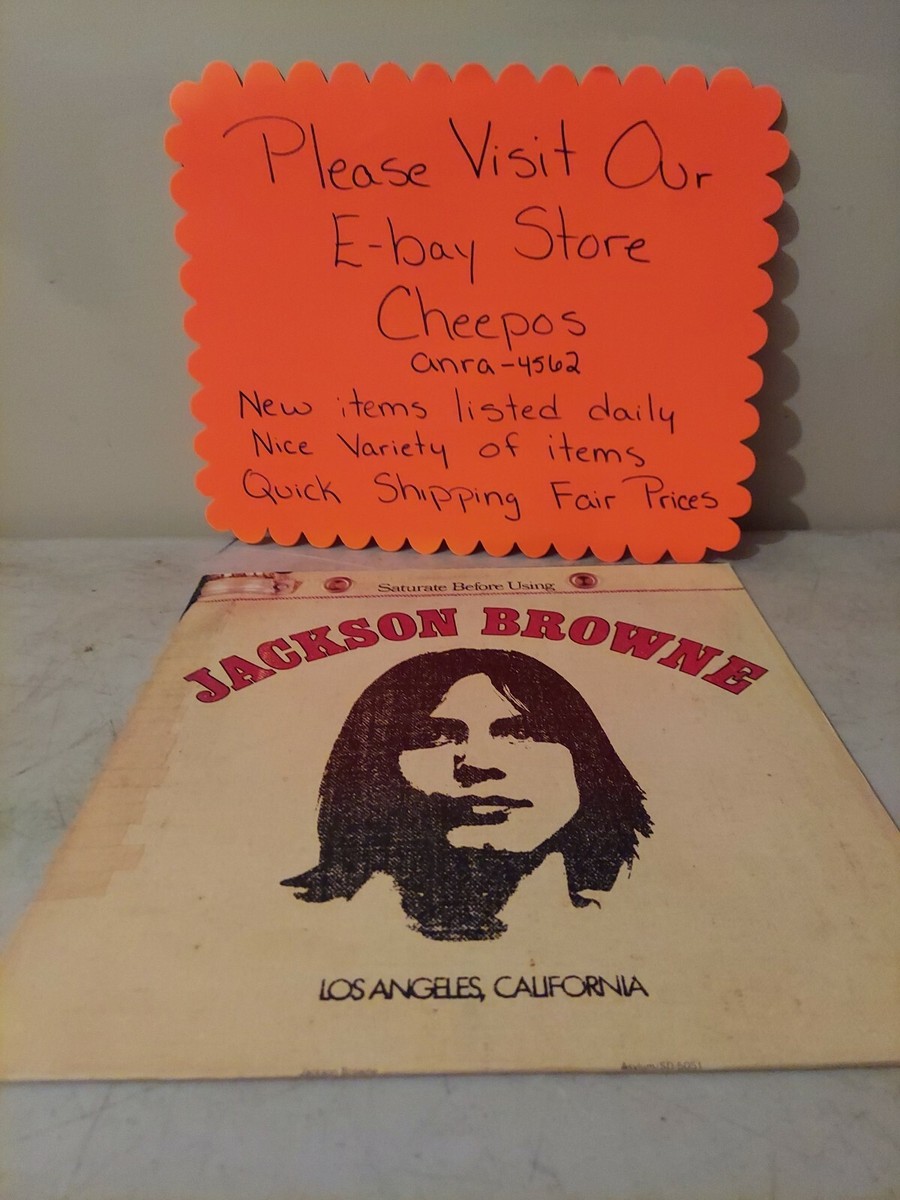 Please Visit Our
E-bay Store
Cheepos
anra-4562
New items listed daily
Nice Variety of items
Quick Shipping Fair Prices
Saturate Before Using
JACKSON BROWNE
LOS ANGELES, CALIFORNIA
Jackson Browne
Asylum SD 5051